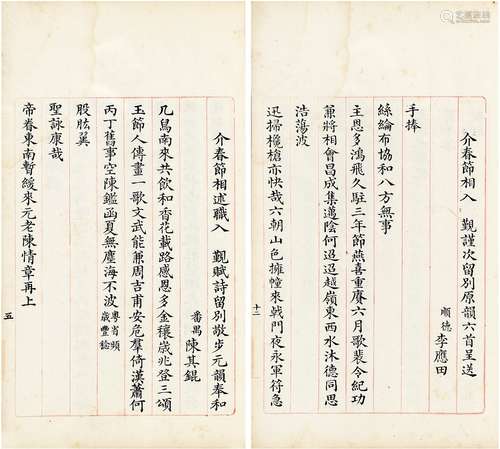 介春節相入 覲謹次留別原韻六首呈送
順德 李應田
手捧
絲綸布協和八方無事
主恩多鴻飛久駐三年節燕喜重賡六月歌裴令紀功
兼將相會昌成集邁陰何迢迢越嶺東西水沐德同思
浩蕩波
迅掃欃槍亦快哉六朝山色擁幢來戟門夜永軍符急
十二
介春節相述職入 覲賦詩留別敬步元韻奉和
番禺 陳其錕
几舄南來共飲和香花載路感恩多金穰歲兆登三頌
玉節人傳畫一歌文武能兼周吉甫安危羣倚漢蕭何
丙丁舊事空陳鑑函夏無塵海不波粵省頻歲豐稔
股肱翼
聖詠康哉
帝眷東南暫緩來元老陳情章再上
五